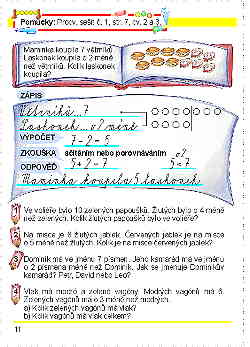 Pomůcky: Procv. sešit č. 1, str. 7, cv. 2 a 3.
Maminka koupila 7 větrníků.
Laskonek koupila o 2 méně
než větrníků. Kolik laskonek
koupila?
ZÁPIS
Větrníků...7
Laskonek...o 2 méně
VÝPOČET
7 - 2 = 5
ZKOUŠKA sčítáním nebo porovnáváním
5 + 2 = 7
ODPOVĚĎ
Maminka koupila 5 laskonek.
1 Ve voliéře bylo 10 zelených papoušků. Žlutých bylo o 4 méně
než zelených. Kolik žlutých papoušků bylo ve voliéře?
2 Na misce je 8 žlutých jablek. Červených jablek je na misce
o 5 méně než žlutých. Kolik je na misce červených jablek?
3 Dominik má ve jménu 7 písmen. Jeho kamarád má ve jménu
o 2 písmena méně než Dominik. Jak se jmenuje Dominikův
kamarád? Petr, David nebo Leo?
4 Vlak má modré a zelené vagóny. Modrých vagónů má 6.
Zelených vagónů má o 3 méně než modrých.
a) Kolik zelených vagónů má vlak?
b) Kolik vagónů má vlak celkem?